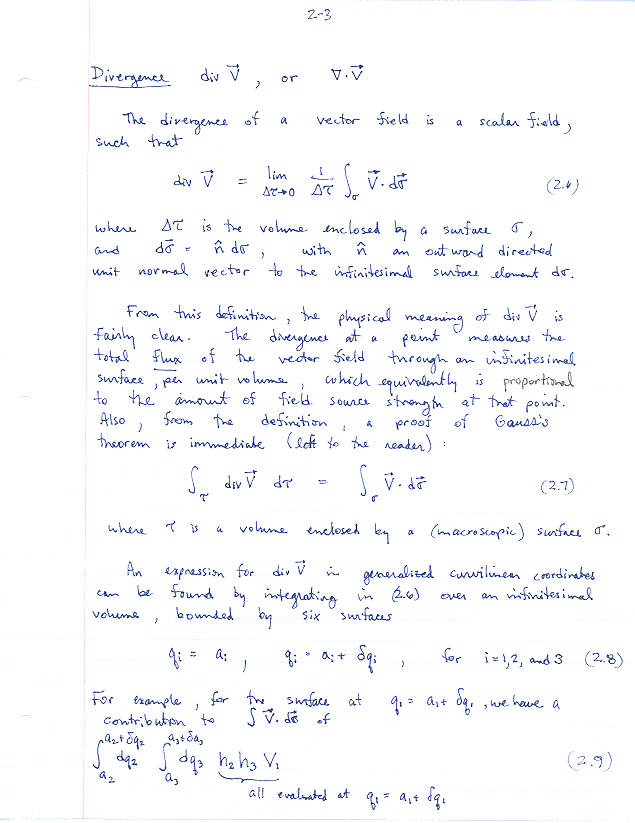 2-3
Divergence div V⃗ , or ∇·V⃗
The divergence of a vector field is a scalar field,
such that
div V⃗ = lim_{Δτ→0} 1/Δτ ∫_σ V⃗·dσ⃗ (2.6)
where Δτ is the volume enclosed by a surface σ,
and dσ⃗ = n̂ dσ , with n̂ an outward directed
unit normal vector to the infinitesimal surface element dσ.
From this definition, the physical meaning of div V⃗ is
fairly clear. The divergence at a point measures the
total flux of the vector field through an infinitesimal
surface, per unit volume, which equivalently is proportional
to the amount of field source strength at that point.
Also, from the definition, a proof of Gauss's
theorem is immediate (left to the reader) :
∫_τ div V⃗ dτ = ∫_σ V⃗·dσ⃗ (2.7)
where τ is a volume enclosed by a (macroscopic) surface σ.
An expression for div V⃗ in generalized curvilinear coordinates
can be found by integrating in (2.6) over an infinitesimal
volume, bounded by six surfaces
q_i = a_i , q_i = a_i + δq_i , for i=1,2, and 3 (2.8)
For example, for the surface at q_1 = a_1 + δq_1, we have a
contribution to ∫ V⃗·dσ⃗ of
∫_{a_2}^{a_2+δq_2} dq_2 ∫_{a_3}^{a_3+δa_3} dq_3 h_2 h_3 V_1 (2.9)
all evaluated at q_1 = a_1 + δq_1